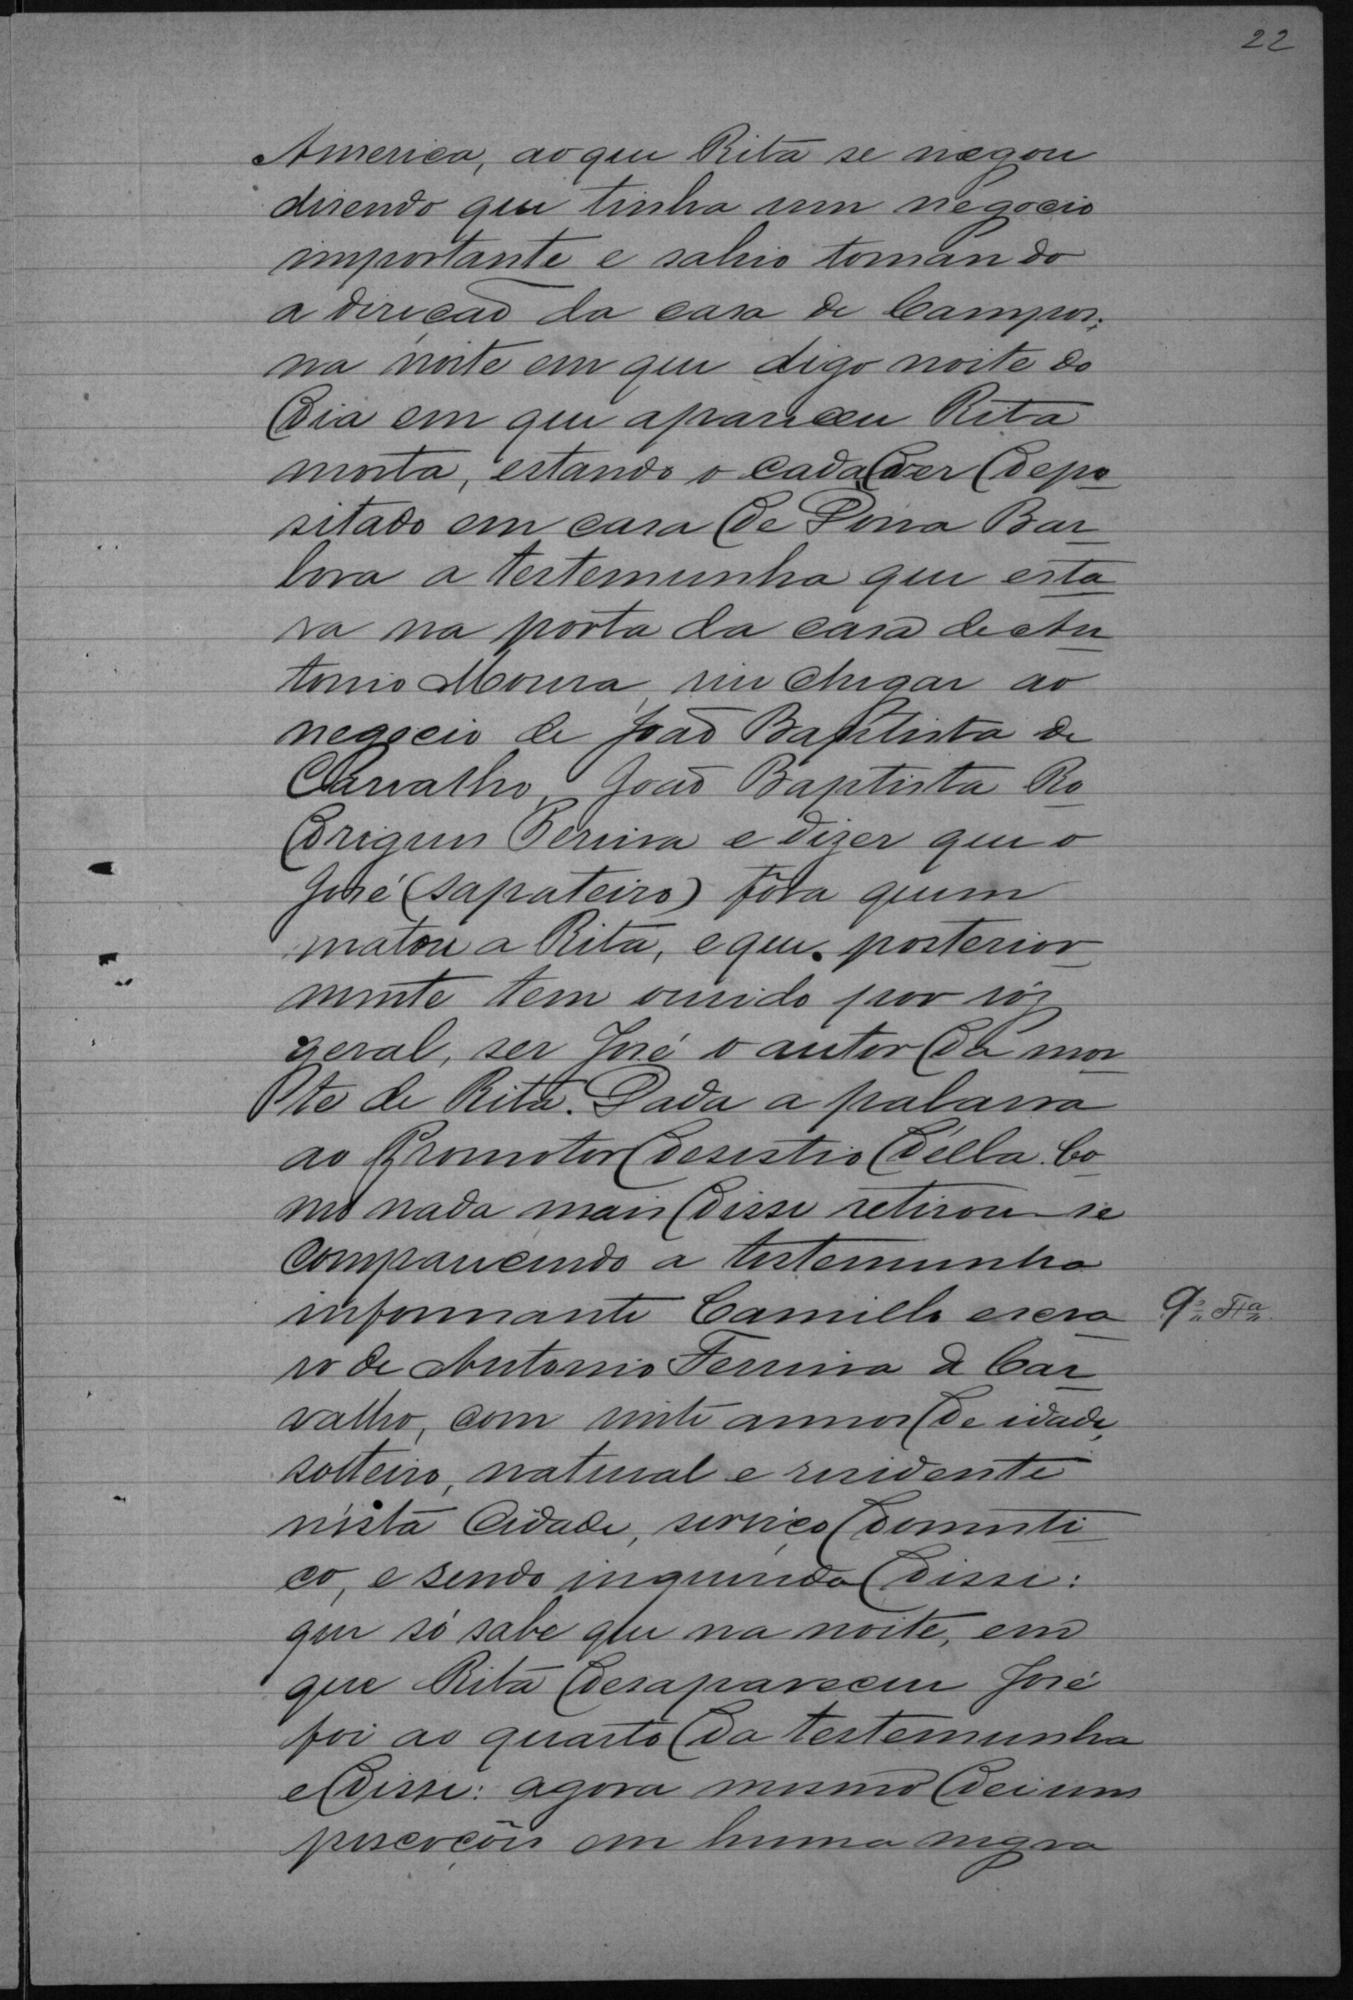 22
America, ao que Rita se negou
disendo que tinha um negocio
importante e sahio toman do
a direcçaõ da casa de Campos;
na noite em que digo noite do
Dia em que appareceu Rita
morta, estando o cadaver depo
sitado em casa de Dona Bar
bora a testemunha que esta
va na porta da casa de An
tonio Moura, viu chegar ao
negocio de Joaõ Baptista de
Carvalho, Joaõ Baptista Ro
drigues Pereira e dizer que o
José (sapateiro) fôra quem
matou a Rita, e que posterior
mente tem ouvido por vóz
geral, ser José o autor da mor
te de Rita. Dada a palavra
ao Promotor desistio d'ella. Co
mo nada mais disse retirou-se
comparecendo a testemunha
informante Camillo escra
9ª Ttª
vo de Antonio Ferreira de Car
valho, com vinte annos de idade,
solteiro, natural e residente
n'esta Cidade, serviço domesti
co, e sendo inquirido disse:
que só sabe que na noite, em
que Rita desapareceu José
foi ao quarto da testemunha
e disse: agora mesmo dei uns
pescoções em huma negra